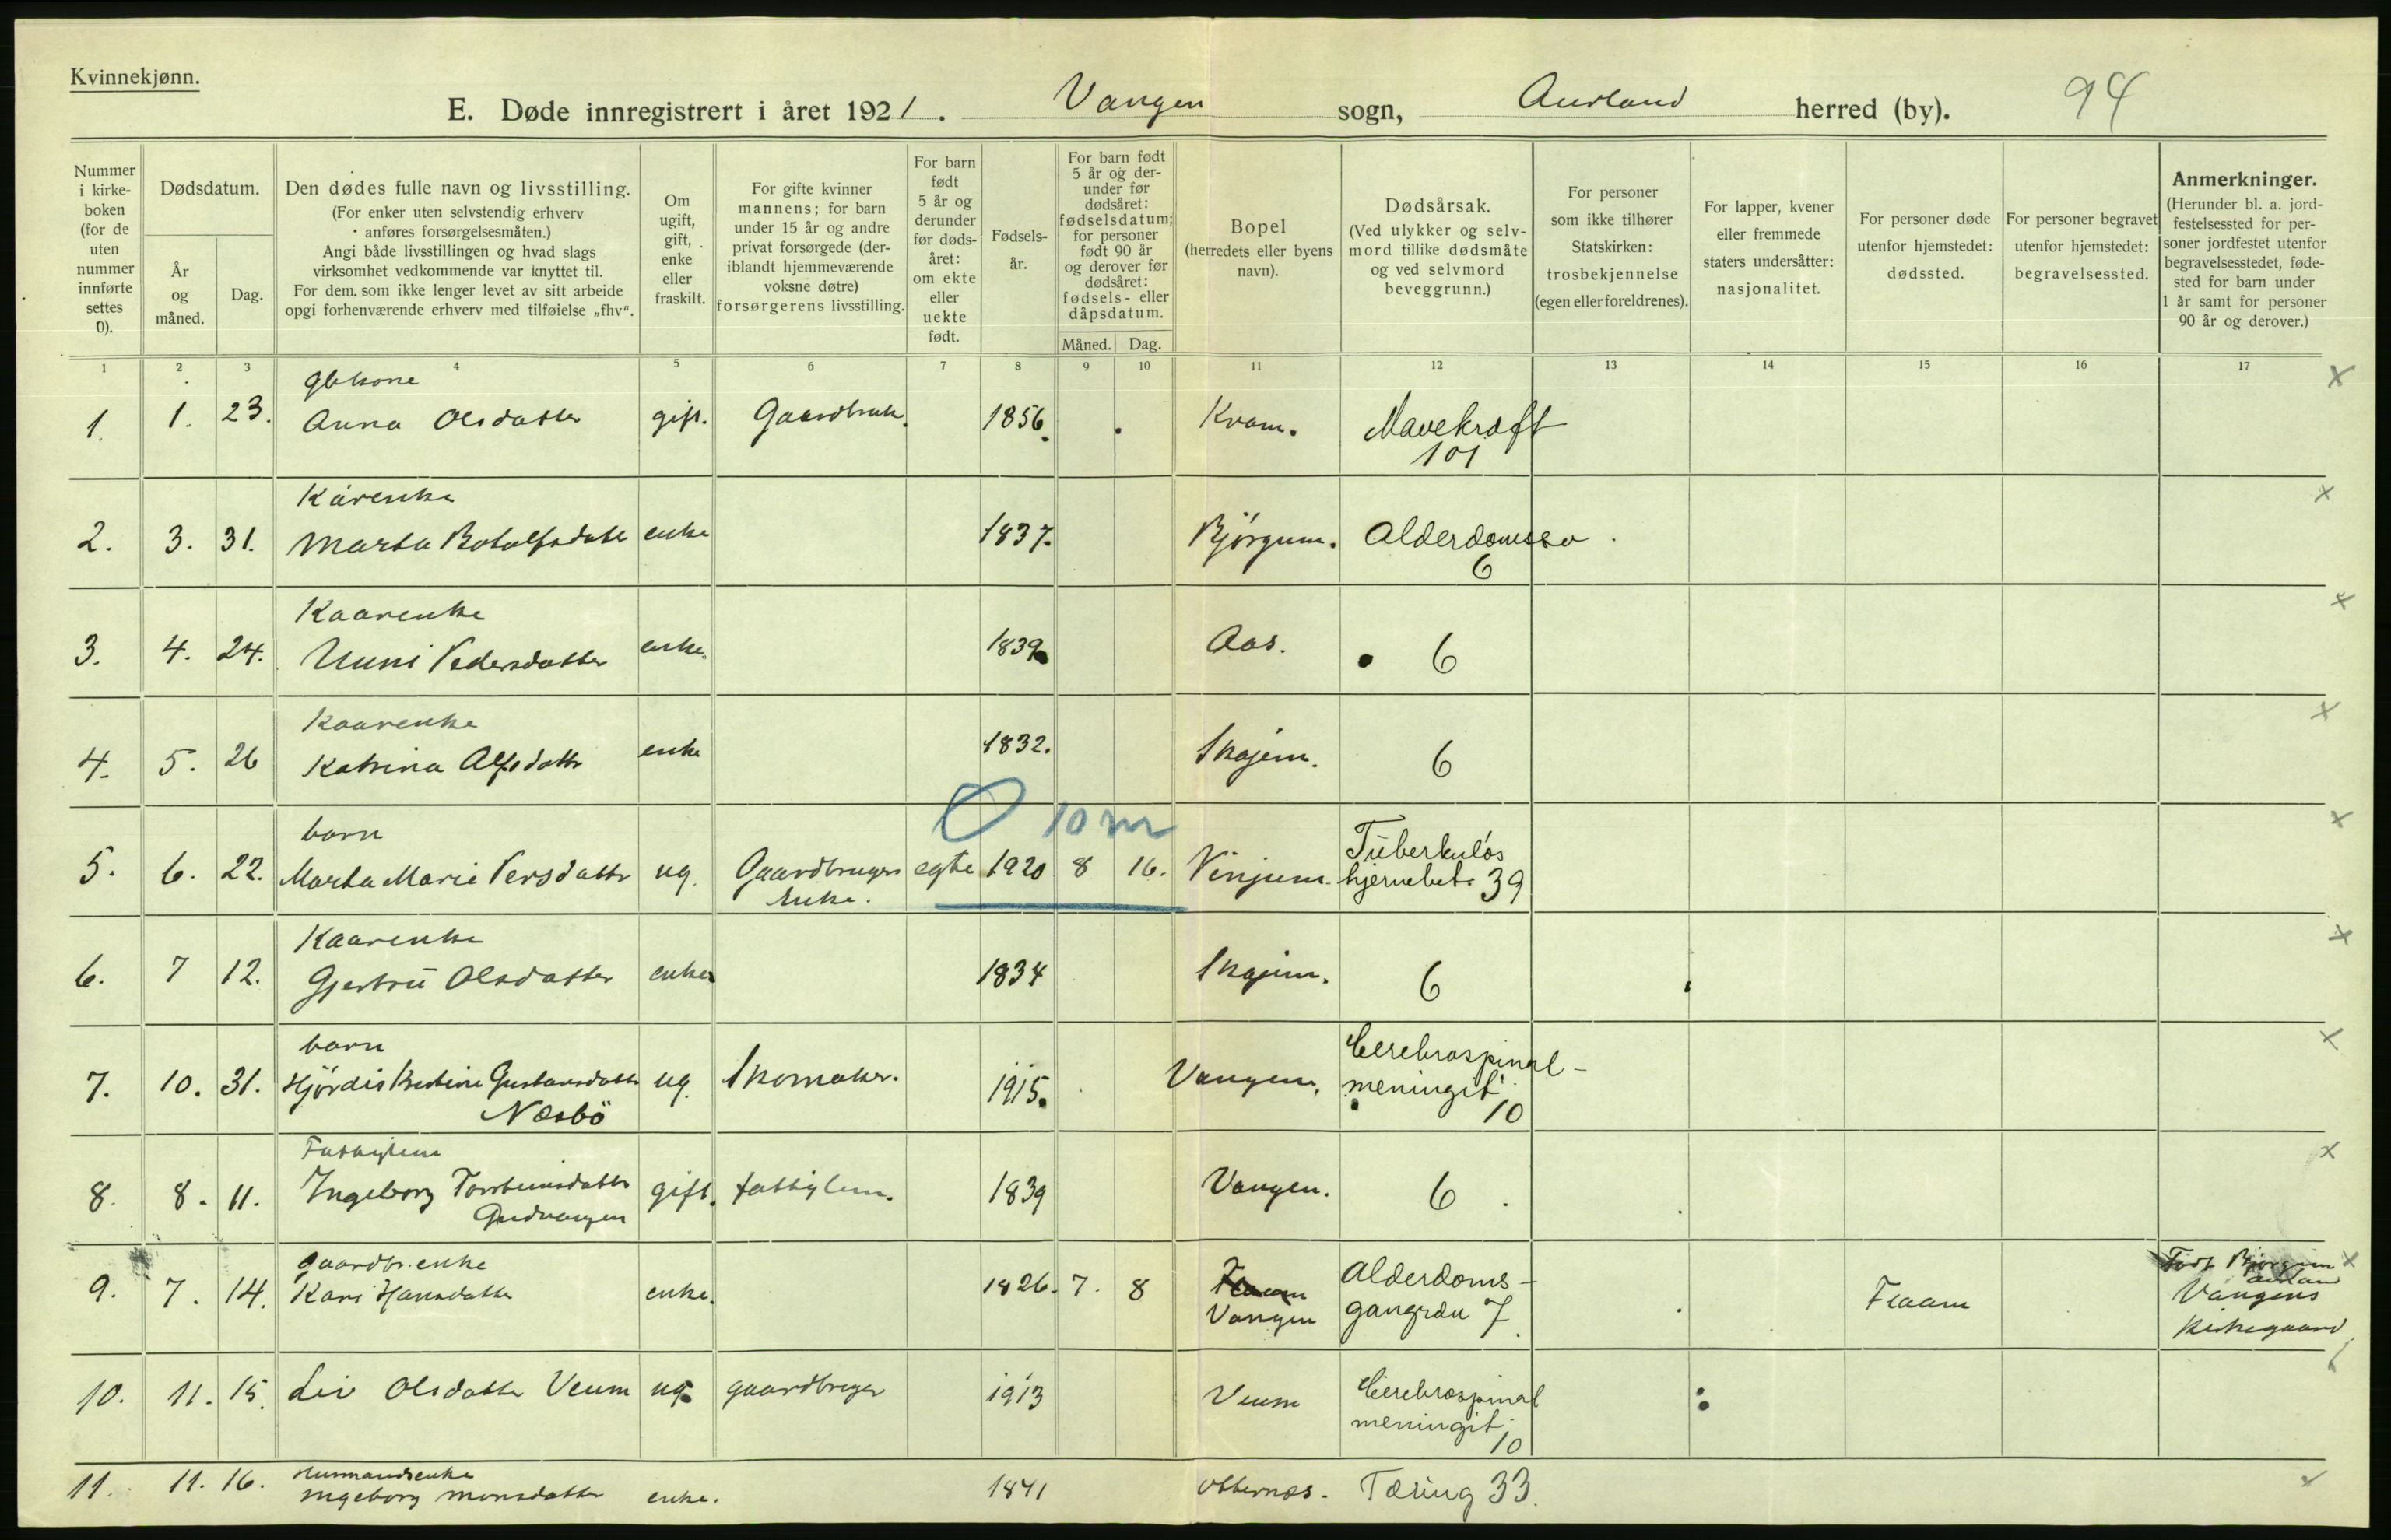 Kvinnekjønn.
E. Døde innregistrert i året 1921. Vangen sogn, Aurland herred (by). 94
Nummer i kirkeboken (for de uten nummer innførte settes 0).
Dødsdatum.
År og måned.
Dag.
Den dødes fulle navn og livsstilling.
(For enker uten selvstendig erhverv
anføres forsørgelsesmåten.)
Angi både livsstillingen og hvad slags
virksomhet vedkommende var knyttet til.
For dem. som ikke lenger levet av sitt arbeide
opgi forhenværende erhverv med tilføielse „fhv“.
Om ugift, gift, enke eller fraskilt.
For gifte kvinner
mannens; for barn
under 15 år og andre
privat forsørgede (der-
iblandt hjemmeværende
voksne døtre)
forsørgerens livsstilling.
For barn
født
5 år og
derunder
før døds-
året:
om ekte
eller
uekte
født.
Fødsels-
år.
For barn født
5 år og der-
under før
dødsåret:
fødselsdatum;
for personer
født 90 år
og derover før
dødsåret:
fødsels- eller
dåpsdatum.
Måned. Dag.
Bopel
(herredets eller byens
navn).
Dødsårsak.
(Ved ulykker og selv-
mord tillike dødsmåte
og ved selvmord
beveggrunn.)
For personer
som ikke tilhører
Statskirken:
trosbekjennelse
(egen eller foreldrenes).
For lapper, kvener
eller fremmede
staters undersåtter:
nasjonalitet.
For personer døde
utenfor hjemstedet:
dødssted.
For personer begravet
utenfor hjemstedet:
begravelsessted.
Anmerkninger.
(Herunder bl. a. jord-
festelsessted for per-
soner jordfestet utenfor
begravelsesstedet, føde-
sted for barn under
1 år samt for personer
90 år og derover.)
1 2 3 4 5 6 7 8 9 10 11 12 13 14 15 16 17
gbkone
1. 1. 23. Anna Olsdatter gift. Gaardbruk. 1856. Kvam. Mavekræft x
101
Kårenke
2. 3. 31. Marta Botolfsdatt enke 1837. Bjørgum. Alderdomssv. x
6
Kaarenke
3. 4. 24. Unni Pedersdatter enke. 1839 Aas. 6 x
Kaarenke
4. 5. 26 Katrina Alfsdattr enke 1832. Skajem. 6 x
barn 10 m
5. 6. 22. Marta Marie Persdattr ug. Gaardbruger egte 1920 8 16. Vinjum. Tuberkuløs x
Enke. hjernebet. 39
Kaarenke
6. 7 12. Gjertrū Olsdatter enke 1834 Skajem. 6 x
barn Cerebrospinal-
7. 10. 31. Hjørdis Kristine Gustavsdatt ug. Skomaker. 1915. Vangen. meningit x
Næsbö 10
Fattiglem
8. 8. 11. Ingeborg Torsteinsdattr gift. fattiglem. 1839 Vangen. 6 x
Gudvangen
gaardbr.enke
9. 7. 14. Kari Hansdatter enke. 1826. 7. 8 Flaam Alderdoms- Flaam Født Bjørgum x
Vangen gangræn 7 Aurland
Vangens
Kirkegaard
10. 11. 15. Liv Olsdatter Veum ug. gaardbruger 1913 Veum Cerebrospinal
meningit.
10
Husmandsenke
11. 11. 16. Ingeborg Monsdatter enke. 1841 Otternæs. Tæring 33.